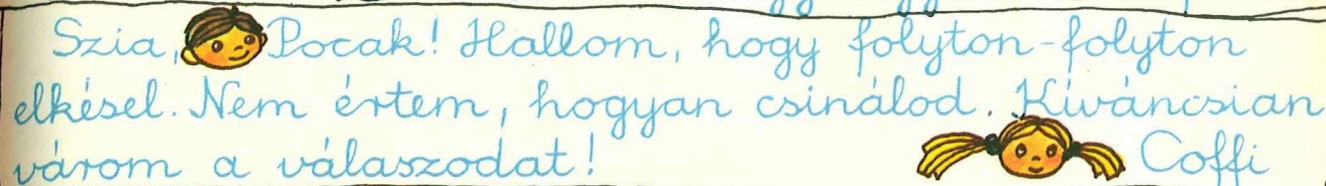 Szia, Pocak! Hallom, hogy folyton-folyton
elkésel. Nem értem, hogyan csinálod. Kíváncsian
várom a válaszodat!
Coffi